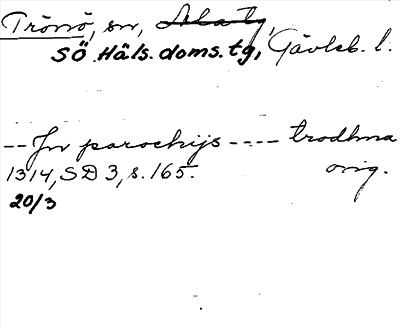 Trönö, sn, Ala tg,
SÖ Häls. doms. tg, Gävleb. l.
-- In parochijs ---- trodhma
1314, SD 3, s. 165. orig.
20/3